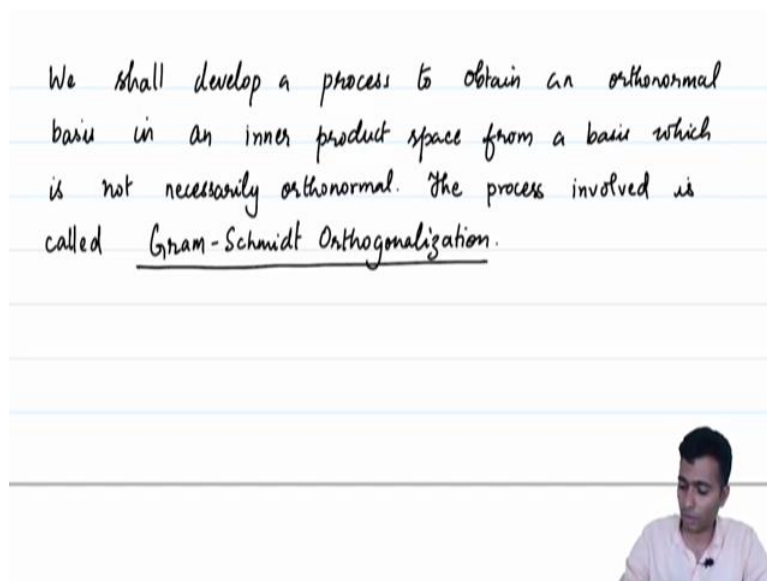 We shall develop a process to obtain an orthonormal
basis in an inner product space from a basis which
is not necessarily orthonormal. The process involved is
called Gram-Schmidt Orthogonalization.